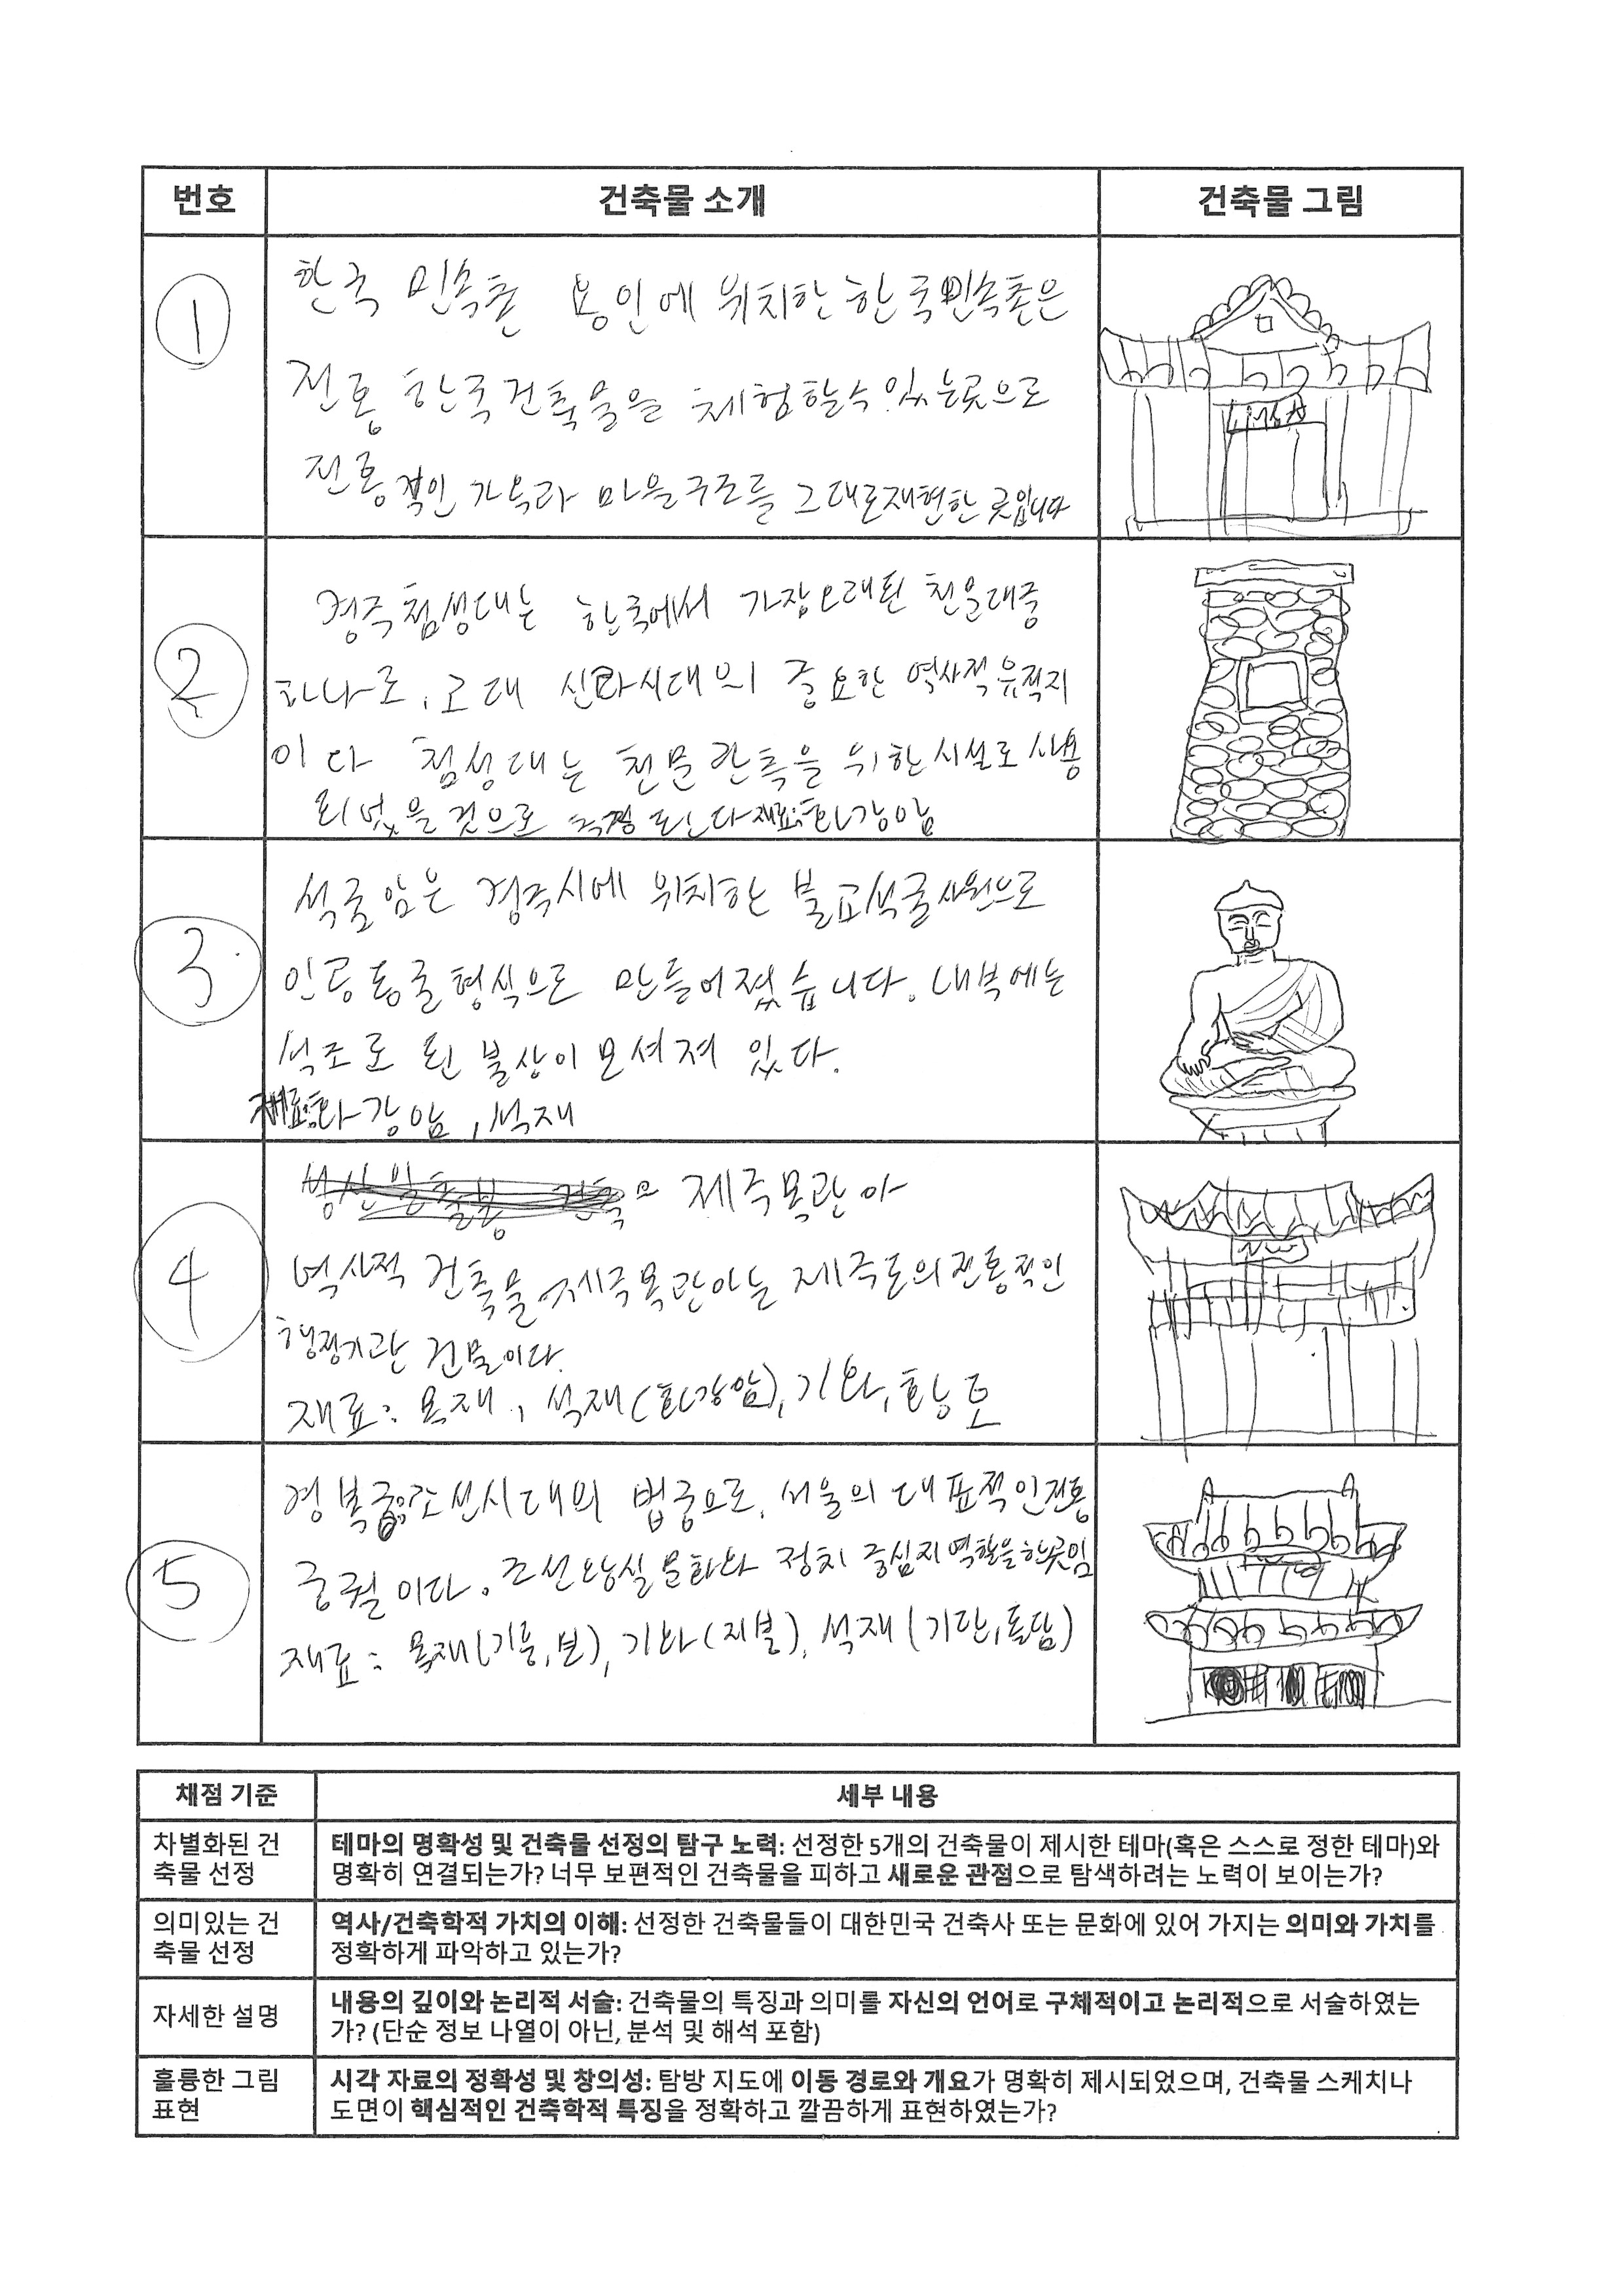 번호 건축물 소개 건축물 그림
1
한국 민속촌 용인에 위치한 한국민속촌은
전통 한국건축물을 체험할수 있는곳으로
전통적인 가옥과 마을구조를 그대로재현한 곳입니다
2
경주첨성대는 한국에서 가장오래된 천문대중
하나로, 고대 신라시대의 중요한 역사적유적지
이다 첨성대는 천문관측을 위한시설로 사용
되었을것으로 추정된다 재료:화강암
3
석굴암은 경주시에 위치한 불교석굴사원으로
인공동굴형식으로 만들어졌습니다. 내부에는
석조로 된 불상이모셔져 있다.
재료:화강암, 석재
4
성산일출봉 제주목관아
역사적 건축물 제주목관아는 제주도의전통적인
행정기관 건물이다.
재료: 목재, 석재(화강암), 기와, 황토
5
경복궁:조선시대의 법궁으로, 서울의 대표적인전통
궁궐이다. 조선왕실문화와 정치 중심지역할을한곳임
재료: 목재(기둥,보), 기와(지붕), 석재(기단,돌담)
채점 기준 세부 내용
차별화된 건
축물 선정
테마의 명확성 및 건축물 선정의 탐구 노력: 선정한 5개의 건축물이 제시한 테마(혹은 스스로 정한 테마)와
명확히 연결되는가? 너무 보편적인 건축물을 피하고 새로운 관점으로 탐색하려는 노력이 보이는가?
의미있는 건
축물 선정
역사/건축학적 가치의 이해: 선정한 건축물들이 대한민국 건축사 또는 문화에 있어 가지는 의미와 가치를
정확하게 파악하고 있는가?
자세한 설명
내용의 깊이와 논리적 서술: 건축물의 특징과 의미를 자신의 언어로 구체적이고 논리적으로 서술하였는
가? (단순 정보 나열이 아닌, 분석 및 해석 포함)
훌륭한 그림
표현
시각 자료의 정확성 및 창의성: 탐방 지도에 이동 경로와 개요가 명확히 제시되었으며, 건축물 스케치나
도면이 핵심적인 건축학적 특징을 정확하고 깔끔하게 표현하였는가?